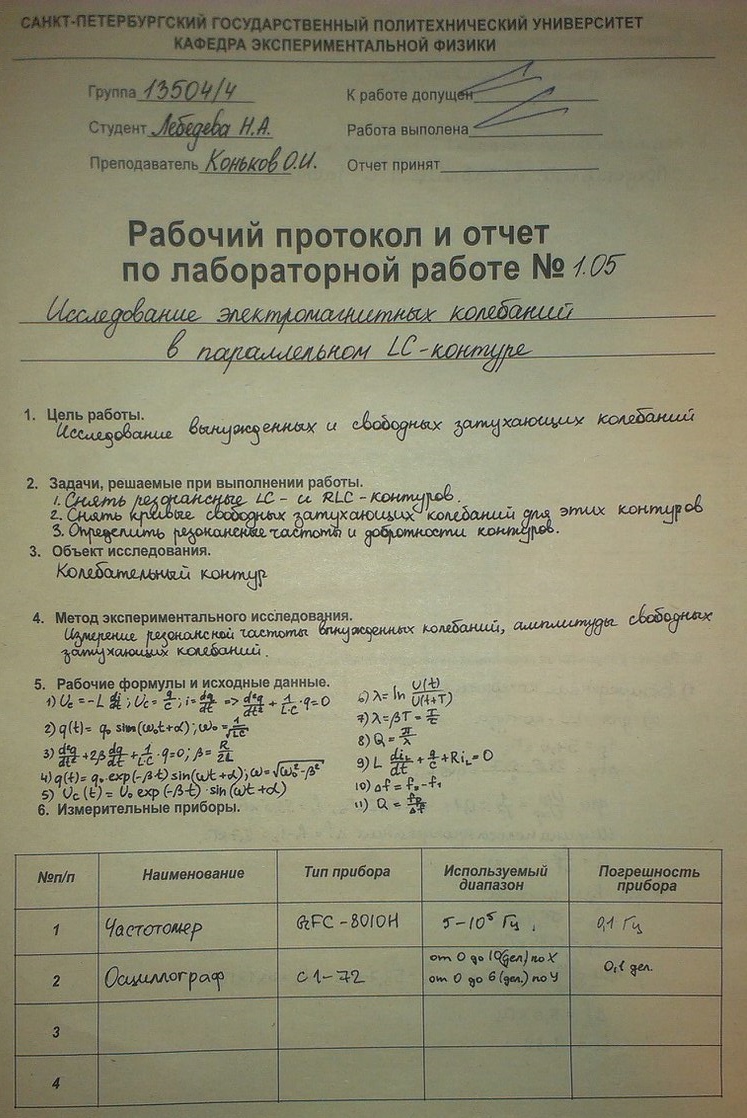 САНКТ-ПЕТЕРБУРГСКИЙ ГОСУДАРСТВЕННЫЙ ПОЛИТЕХНИЧЕСКИЙ УНИВЕРСИТЕТ
КАФЕДРА ЭКСПЕРИМЕНТАЛЬНОЙ ФИЗИКИ
Группа 13504/4
К работе допущен
Студент Лебедева Н.А.
Работа выполена
Преподаватель Коньков О.И.
Отчет принят
Рабочий протокол и отчет
по лабораторной работе № 1.05
Исследование электромагнитных колебаний
в параллельном LC-контуре
1. Цель работы.
Исследование вынужденных и свободных затухающих колебаний
2. Задачи, решаемые при выполнении работы.
1. Снять резонансные LC- и RLC-контуров.
2. Снять кривые свободных затухающих колебаний для этих контуров
3. Определить резонансные частоты и добротности контуров.
3. Объект исследования.
Колебательный контур
4. Метод экспериментального исследования.
Измерение резонансной частоты вынужденных колебаний, амплитуды свободных
затухающих колебаний.
5. Рабочие формулы и исходные данные.
1) U_L = -L di/dt; U_C = q/c; i = dq/dt => d²q/dt² + 1/(L·C)·q=0
2) q(t) = q₀ sin(ω₀t+α); ω₀ = 1/√LC
3) d²q/dt² + 2β dq/dt + 1/(L·C)·q=0; β = R/2L
4) q(t) = q₀·exp(-β·t) sin(ωt+α); ω=√(ω₀²-β²)
5) U_C(t) = U₀ exp(-β·t)·sin(ωt+α)
6) λ = ln U(t)/U(t+T)
7) λ = βT = T/τ
8) Q = π/λ
9) L di_L/dt + q/c + Ri_L = 0
10) Δf = f₂-f₁
11) Q = f_р/Δf
6. Измерительные приборы.
№п/п Наименование Тип прибора Используемый диапазон Погрешность прибора
1 Частотомер GFC-8010H 5-10⁵ Гц 0,1 Гц
2 Осциллограф С1-72 от 0 до 10(дел) по X от 0 до 6 (дел.) по У 0,1 дел.
3
4